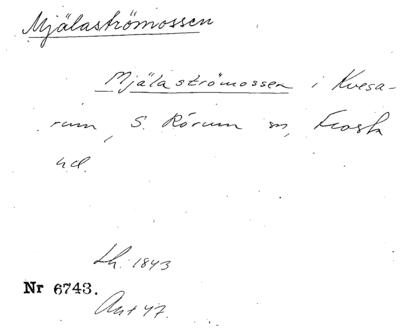 Mjälaströmossen
Mjälaströmossen i Kvesa-
rum, S. Rörum sn, Frosta
hd.
Lh. 1843
Nr 6743.
Akt 47.